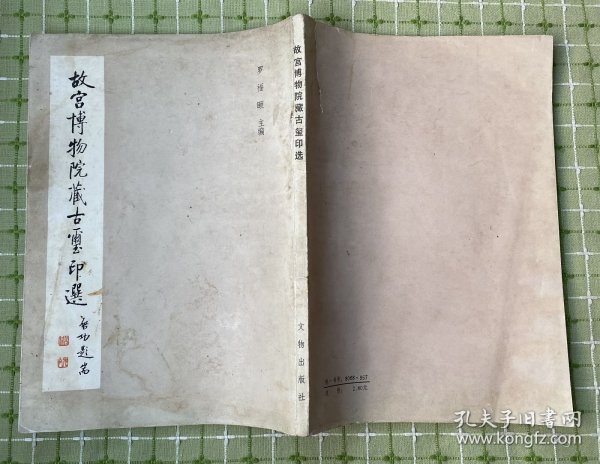 故宫博物院藏古玺印选
启功题耑
罗福颐 主编
故宫博物院藏古玺印选
文物出版社
统一书号：8068·957
定价：2.80元
孔夫子旧书网
www.kongfz.com